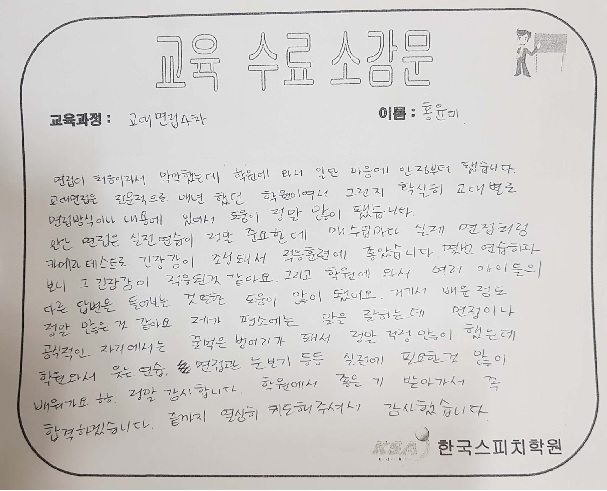 교육 수료 소감문
교육과정 : 교대면접4차
이름 : 홍윤미
면접이 처음이라서 막막했는데 학원에 와서 일단 마음에 안정부터 됐습니다.
교대면접을 전문적으로 매년 했던 학원이여서 그런지 확실히 교대별로
면접방식이나 내용에 있어서 도움이 정말 많이 됐습니다.
일단 면접은 실전연습이 정말 중요한데 매 수업마다 실제 면접처럼
카메라 테스트로 긴장감이 조성돼서 적응훈련에 좋았습니다. 몇번 연습하다
보니 그 긴장감이 적응된것 같아요. 그리고 학원에 와서 여러 아이들의
다른 답변을 들어보는 것 또한 도움이 많이 됐어요. 여기서 배운 정보
정말 많은 것 같아요 제가 평소에는 말을 잘하는데 면접이나
공식적인 자리에서는 꿀먹은 벙어리가 돼서 정말 걱정 많이 했는데
학원와서 웃는 연습, 면접관 눈보기 등등 실전에 필요한것 많이
배워가요 ㅎㅎ. 정말 감사합니다. 학원에서 좋은 기 받아가서 꼭
합격하겠습니다. 끝까지 열심히 지도해주셔서 감사했습니다.
KSA 한국스피치학원